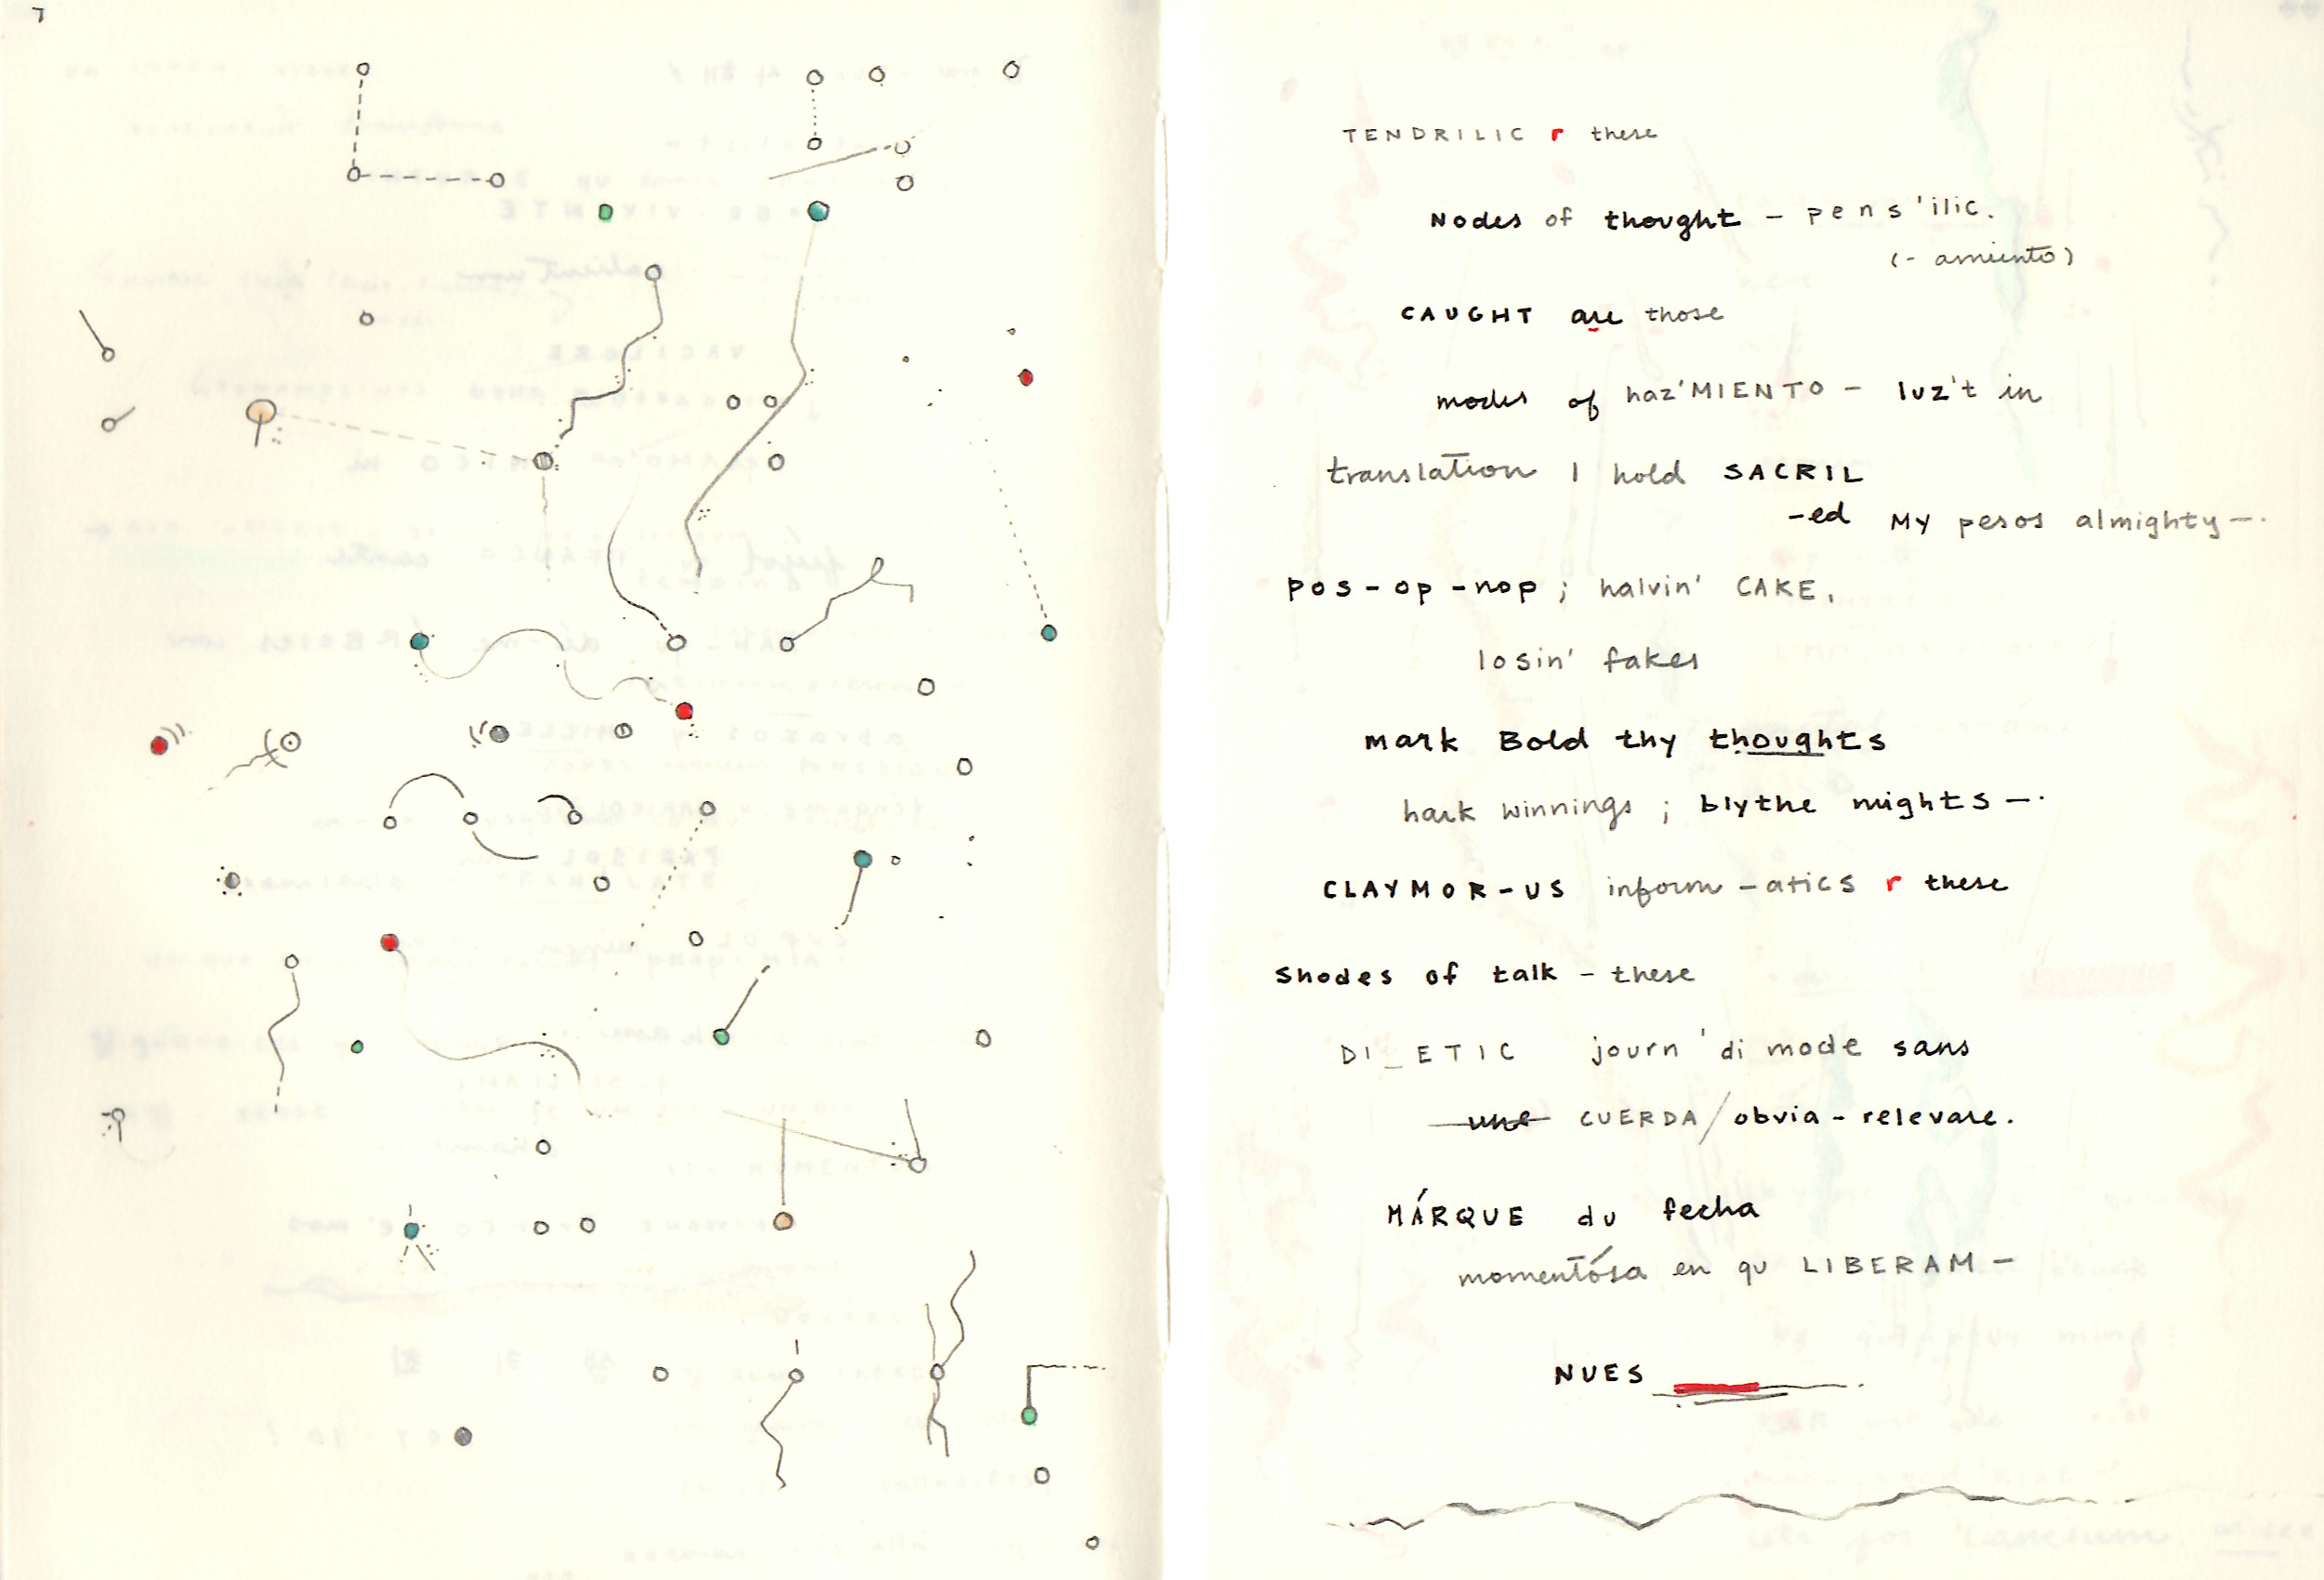 TENDRILIC r these
Nodes of thought – pens'ilic.
(- amiento)
CAUGHT are those
modes of haz'MIENTO – luz't in
translation I hold SACRIL
-ed My pesos almighty –.
pos-op-nop ; halvin' CAKE.
losin' fakes
mark Bold thy thoughts
hark winnings ; blythe mights –.
CLAYMOR-US inform-atics r these
Shodes of talk – these
DI_ETIC journ'di mode sans
une CUERDA/obvia-relevare.
MÁRQUE du fecha
momentósa en qu LIBERAM–
NUES